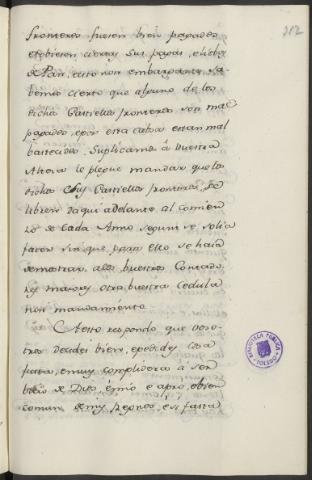 312
fronteros fuesen bien pagados
e obiesen ciertas sus pagas, e libr
de Pan, esto non embargante sa
bemos cierto que alguno de los
dichos Castiellos fronteros son mal
pagados, e por esta causa estan mal
bastecidos. Suplicamos á vuestra
Altesa le plegue mandar que los
dichos sus Castiellos fronteros, se
libren daqui adelante al comien
zo de cada Anno segunt se solia
faser sin que para ello se haia
demostrar a los buestros Contado
res maiores otra buestra Cedula
nin mandamiento.
A esto respondo que voso
tros decides bien, e pedides cosa
justa, e muy complidera á ser
bicio de Dios é mio e a pro, e bien
comun de mis Regnos, e es fasta
BIBLIOTECA PUBLICA
TOLEDO